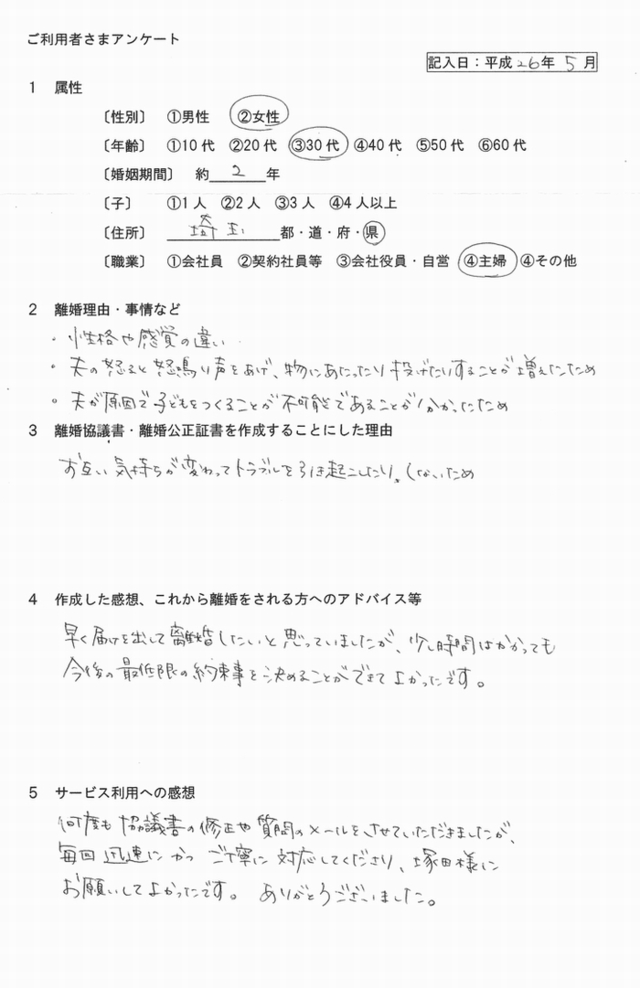 ご利用者さまアンケート
記入日：平成26年 5月
1 属性
〔性別〕 ①男性 ②女性
〔年齢〕 ①10代 ②20代 ③30代 ④40代 ⑤50代 ⑥60代
〔婚姻期間〕 約 2 年
〔子〕 ①1人 ②2人 ③3人 ④4人以上
〔住所〕 埼玉 都・道・府・県
〔職業〕 ①会社員 ②契約社員等 ③会社役員・自営 ④主婦 ④その他
2 離婚理由・事情など
・性格や感覚の違い
・夫の怒ると怒鳴り声をあげ、物にあたったり投げたりすることが増えたため
・夫が原因で子どもをつくることが不可能であることが分かったため
3 離婚協議書・離婚公正証書を作成することにした理由
お互い気持ちが変わってトラブルを引き起こしたりしないため
4 作成した感想、これから離婚をされる方へのアドバイス等
早く届けを出して離婚したいと思っていましたが、少し時間はかかっても
今後の最低限の約束事を決めることができてよかったです。
5 サービス利用への感想
何度も協議書の修正や質問のメールをさせていただきましたが、
毎回迅速にかつご丁寧に対応してくださり、塚田様に
お願いしてよかったです。ありがとうございました。